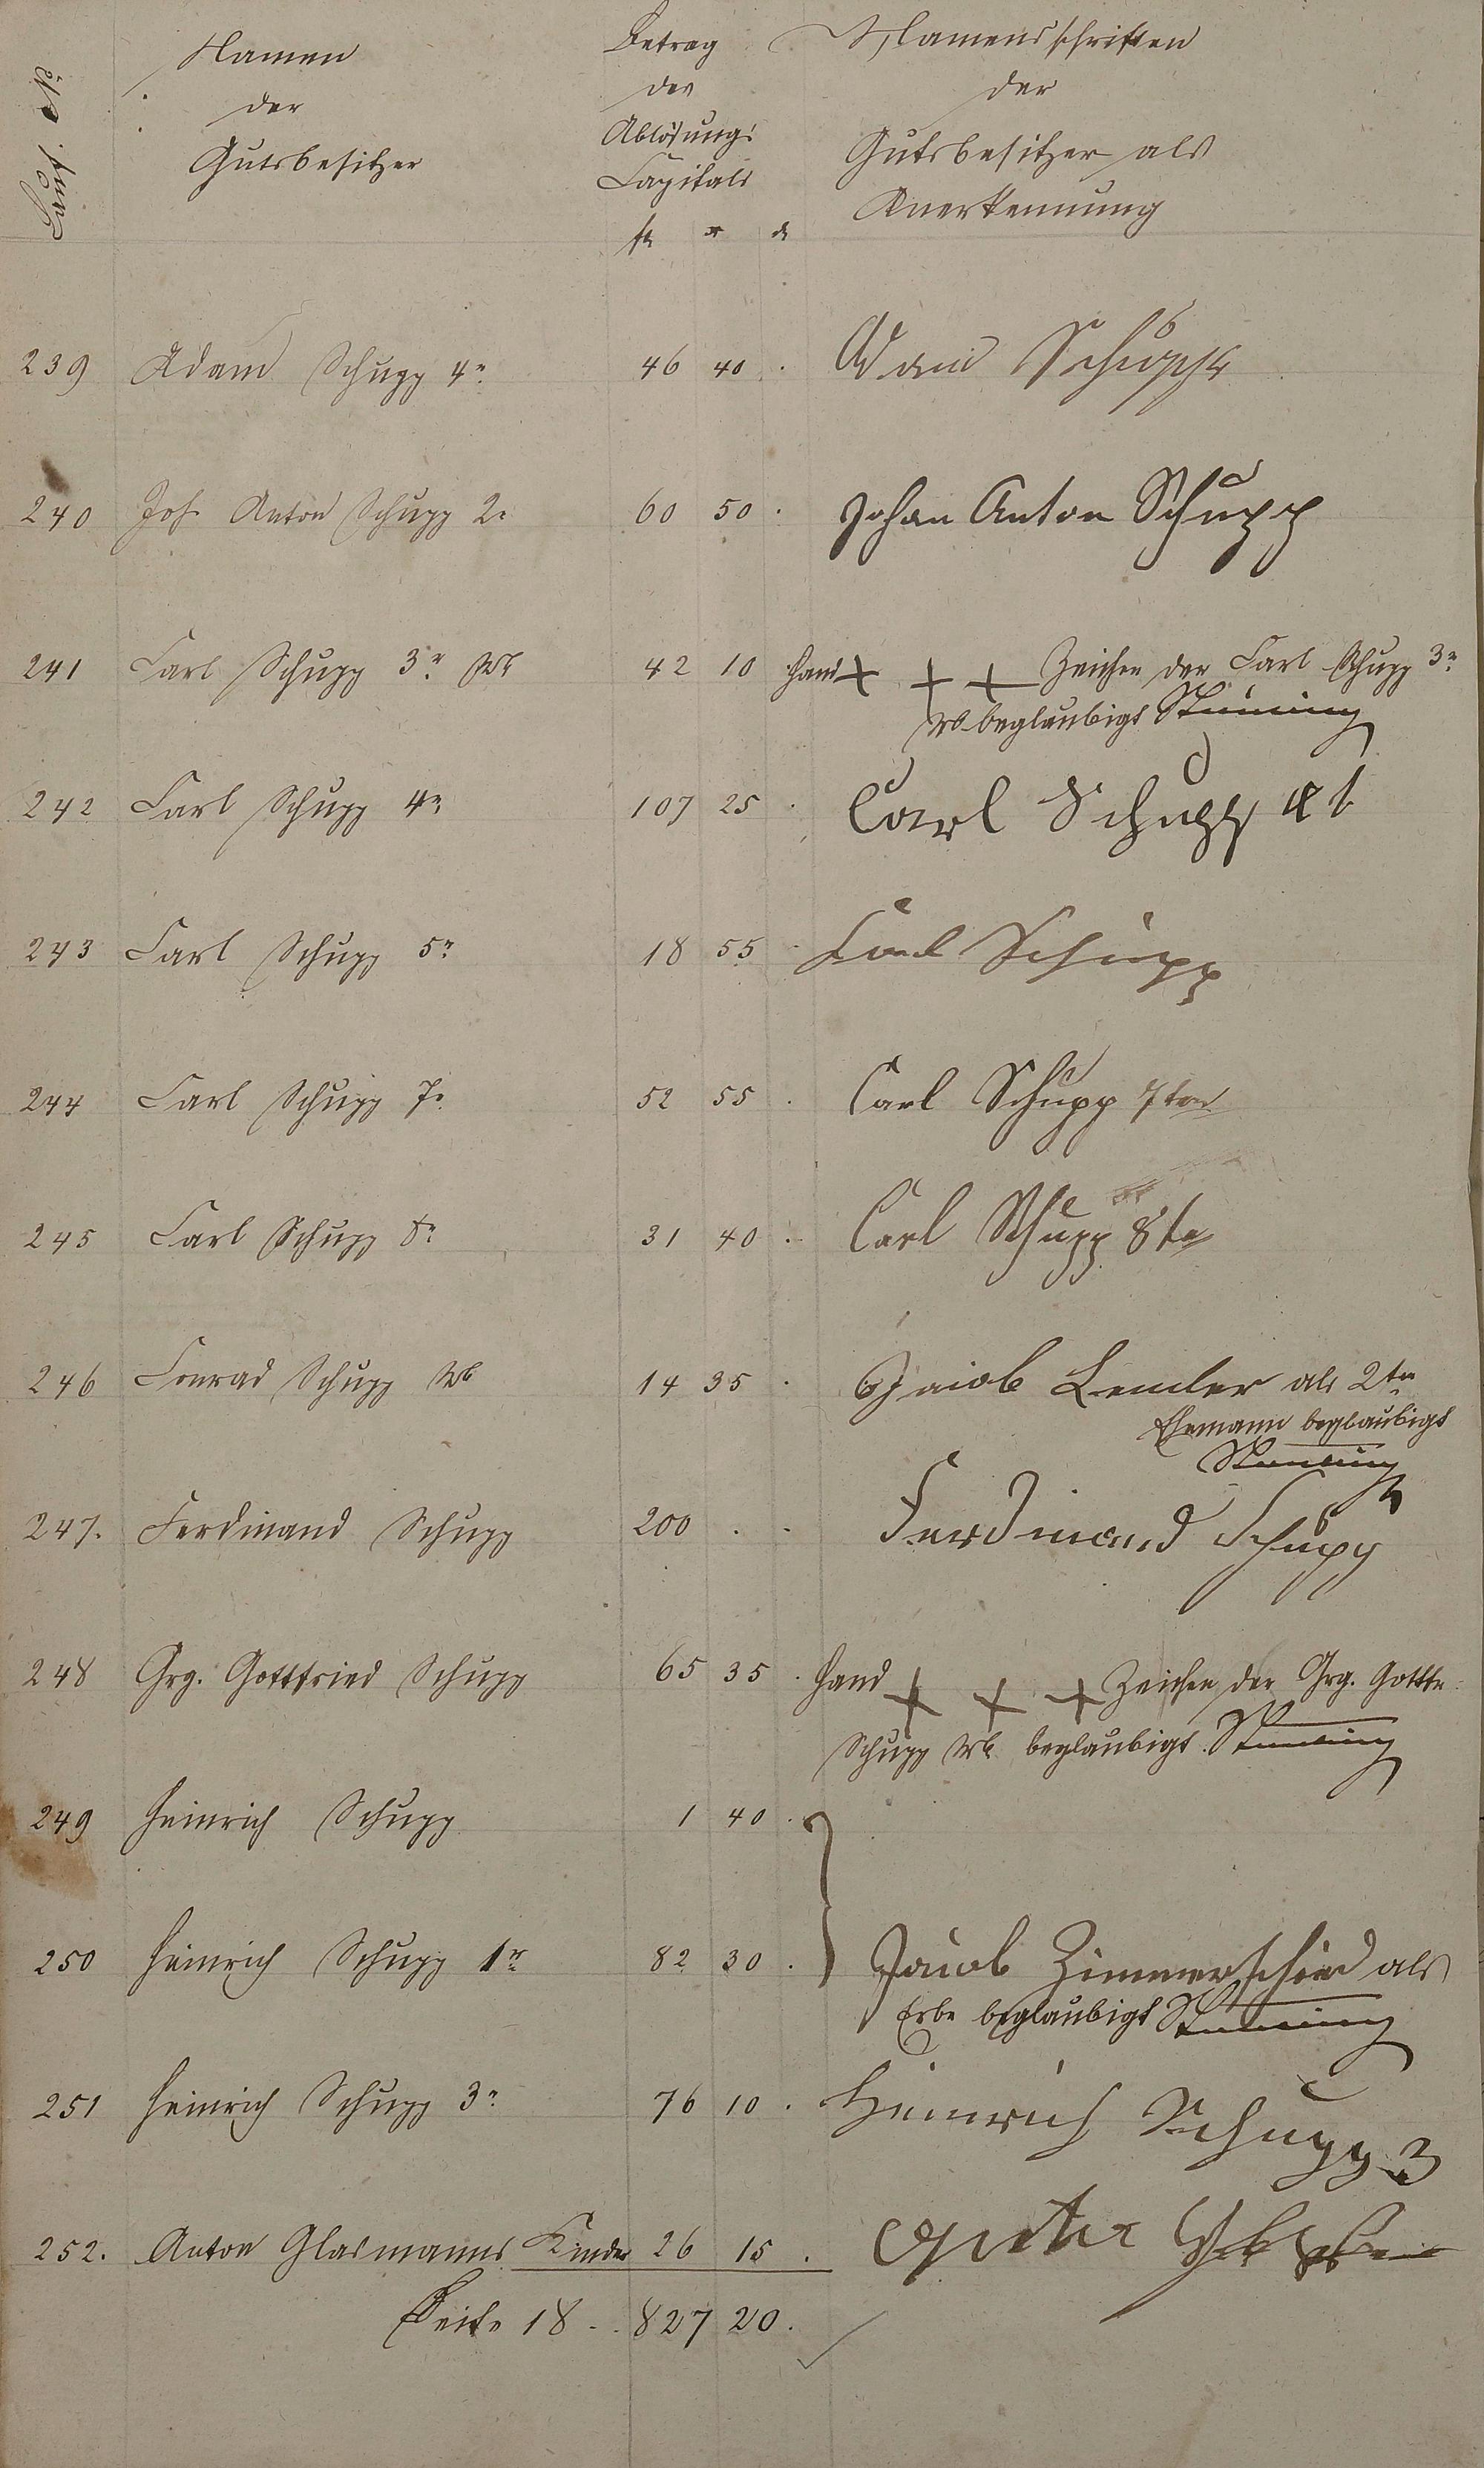 Namen
der
Gutsbesitzer
Betrag
des
Ablösungs
Capitals
fl x d
Namensschriften
der
Gutsbesitzer als
Anerkennung
239 Adam Schupp 4r 46 40 . Adam Schupp
240 Joh Anton Schupp 2r 60 50 . Johan Anton Schupp
241 Carl Schupp 3r Wb 42 10 Hand + + + Zeichen der Carl Schupp 3r
Wb beglaubigt
242 Carl Schupp 4r 107 25 . Carl Schupp 4t
243 Carl Schupp 5r 18 55 . Carl Schupp
244 Carl Schupp 7r 52 55 . Carl Schupp 7ten
245 Carl Schupp 8r 31 40 . Carl Schupp 8te
246 Conrad Schupp Wb 14 35 . Jacob Lemler als 2ter
Ehemann beglaubigt
247. Ferdinand Schupp 200 . . Ferdinand Schupp
248 Grg. Gottfried Schupp 65 35 . Hand + + + Zeichen der Grg. Gottfr.
Schupp Wb beglaubigt
249 Heinrich Schupp 1 40 .
250 Heinrich Schupp 1r 82 30 . Jacob Zimmerschied als
Erbe beglaubigt
251 Heinrich Schupp 3r 76 10 . Heinrich Schupp 3
252. Anton Glasmanns Kinder 26 15 .
Seite 18 . . 827 20 .